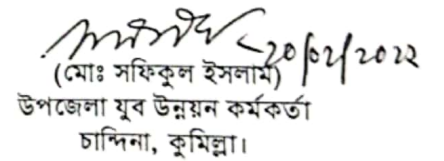 ২০/০২/২০২২
(মোঃ সফিকুল ইসলাম)
উপজেলা যুব উন্নয়ন কর্মকর্তা
চান্দিনা, কুমিল্লা।